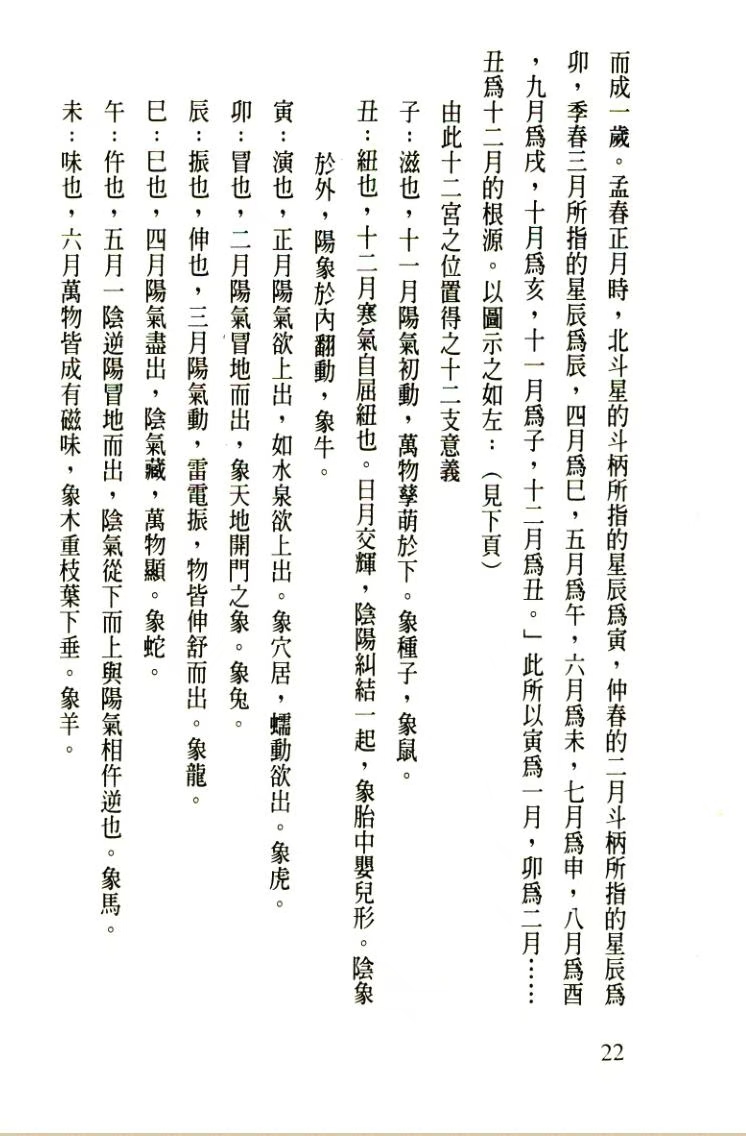 而成一歲。孟春正月時，北斗星的斗柄所指的星辰爲寅，仲春的二月斗柄所指的星辰爲
卯，季春三月所指的星辰爲辰，四月爲巳，五月爲午，六月爲未，七月爲申，八月爲酉
，九月爲戌，十月爲亥，十一月爲子，十二月爲丑。」此所以寅爲一月，卯爲二月……
丑爲十二月的根源。以圖示之如左：（見下頁）
由此十二宮之位置得之十二支意義
子：滋也，十一月陽氣初動，萬物孳萌於下。象種子，象鼠。
丑：紐也，十二月寒氣自屈紐也。日月交輝，陰陽糾結一起，象胎中嬰兒形。陰象
於外，陽象於內翻動，象牛。
寅：演也，正月陽氣欲上出，如水泉欲上出。象穴居，蠕動欲出。象虎。
卯：冒也，二月陽氣冒地而出，象天地開門之象。象兔。
辰：振也，伸也，三月陽氣動，雷電振，物皆伸舒而出。象龍。
巳：巳也，四月陽氣盡出，陰氣藏，萬物顯。象蛇。
午：仵也，五月一陰逆陽冒地而出，陰氣從下而上與陽氣相仵逆也。象馬。
未：味也，六月萬物皆成有磁味，象木重枝葉下垂。象羊。
22